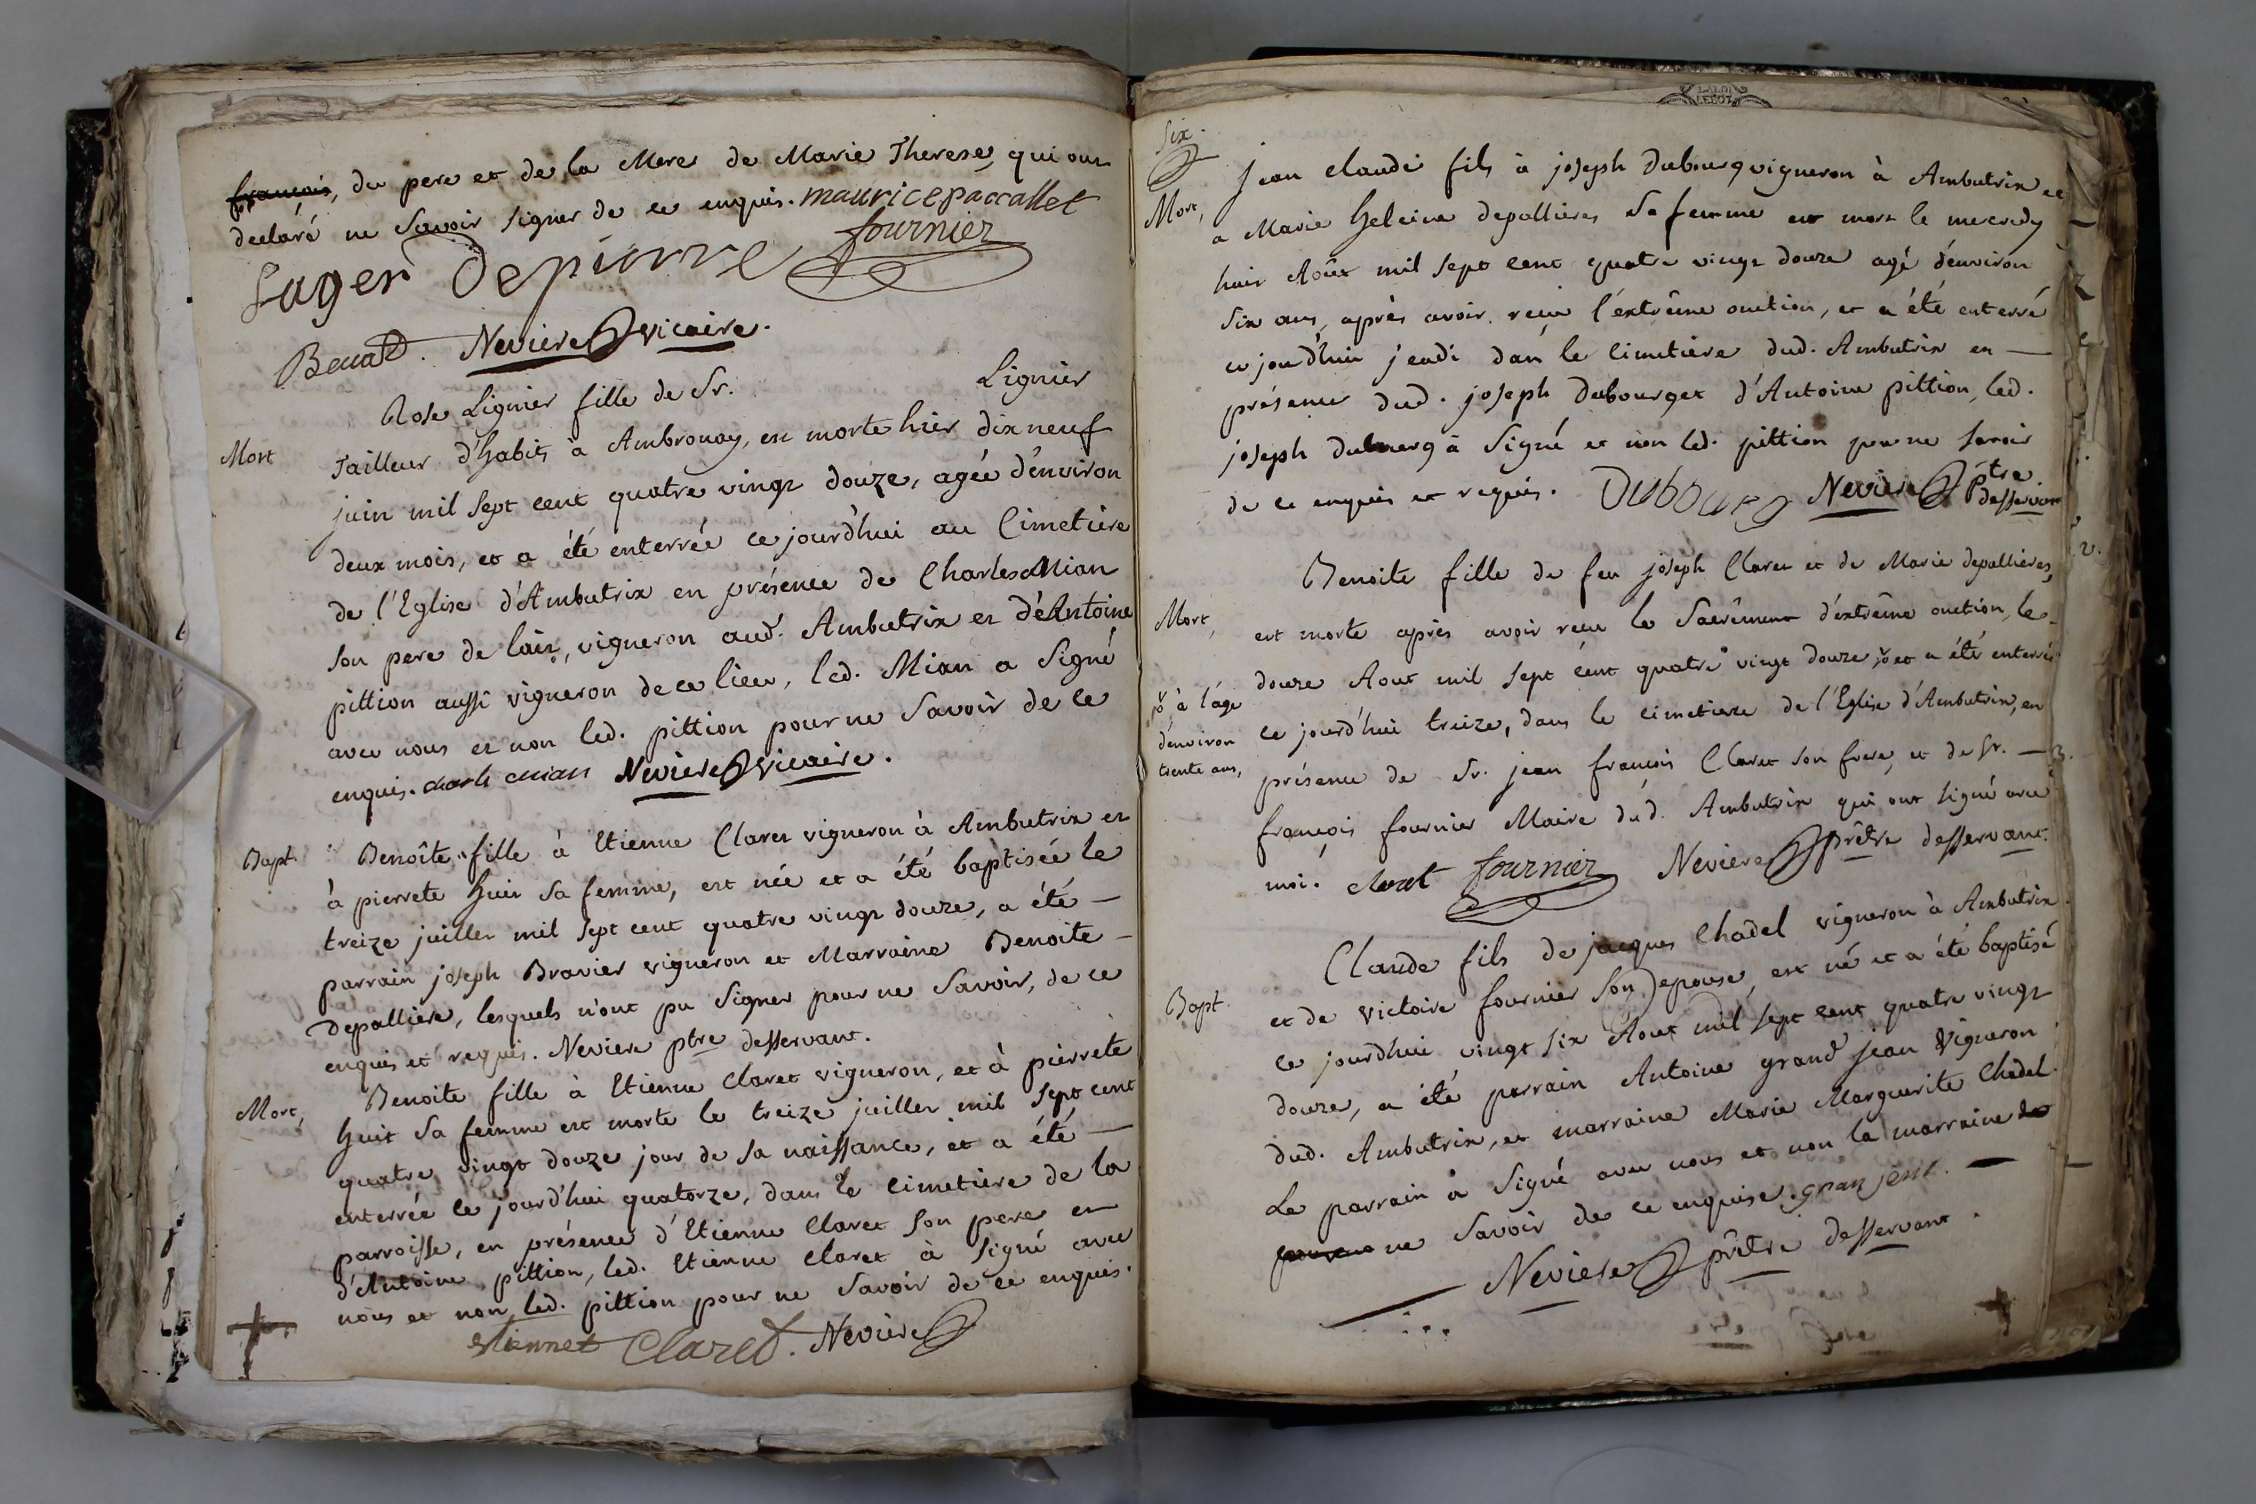 françois, du pere et de la Mere de Marie Therese, qui ont
declaré ne Savoir signer de ce enquis. maurice paccallet
fournier
Sager Depierre
Neviere vicaire.
Mort
Rose Lignier fille de Sr. Lignier
Tailleur d'habits à Ambronay, est morte hier dix neuf
juin mil sept cent quatre vingt douze, agée d'environ
deux mois, et a été enterrée ce jourd'hui au Cimetière
de l'Eglise d'Ambutrix en présence de Charles Mian
son pere de lait, vigneron aud. Ambutrix et d'Antoine
pittion aussi vigneron de ce lieu, led. Mian a Signé
avec nous et non led. pittion pour ne Savoir de ce
enquis. charle mian Neviere vicaire.
Bapt.
Benoîte fille à Etienne Claret vigneron à Ambutrix et
à pierrete huit sa femme, est née et a été baptisée le
treize juillet mil sept cent quatre vingt douze, a été —
parrain joseph Bravier vigneron et Marraine Benoite —
Depalliere, lesquels n'ont pu Signer pour ne Savoir, de ce
enquis et requis. Neviere ptre desservant.
Mort,
Benoite fille à Etienne Claret vigneron, et à pierrete
huit sa femme est morte le treize juillet mil sept cent
quatre vingt douze jour de sa naissance, et a été —
enterrée ce jourd'hui quatorze, dans le cimetière de la
parroisse, en présence d'Etienne Claret son pere et
d'Antoine pittion, led. Etienne Claret à signé avec
nous et non led. pittion pour ne Savoir de ce enquis.
etiennet Claret. Neviere
Six.
Mort,
jean claude fils à joseph Dubourg vigneron à Ambutrix et
a Marie heleine depallieres Sa femme est mort le mercredy
huit Août mil sept cent quatre vingt douze agé d'environ
Six ans, après avoir reçu l'extrême onction, et a été enterré
ce jourd'hui jeudi dans le cimetière dud. Ambutrix en —
présence dud. joseph Dubourg et d'Antoine pittion, led.
joseph Dubourg à Signé et non led. pittion pour ne Savoir
de ce enquis et requis. Dubourg Neviere Ptre desservant
Mort,
Benoite fille de feu joseph Claret et de Marie depallieres,
est morte après avoir reçu le Sacrêment d'extrême onction, le
douze Aout mil sept cent quatre vingt douze, et a été enterrée
à l'age
d'environ
trente ans,
ce jourd'hui treize, dans le cimetiere de l'Eglise d'Ambutrix, en
présence de Sr. jean françois Claret son frere, et de Sr. —
françois fournier Maire dud. Ambutrix qui ont signé avec
moi. claret fournier Neviere prêtre desservant.
Bapt.
Claude fils de jacques Chadel vigneron à Ambutrix
et de victoire fournier son epouse, est né et a été baptisé
ce jourdhui vingt six Aout mil sept cent quatre vingt
douze, a été parrain Antoine grand jean Vigneron
dud. Ambutrix, et marraine Marie Marguerite Chadel.
Le parrain à Signé avec nous et non la marraine
ne Savoir de ce enquise. gran jent. —
Neviere prêtre desservant.